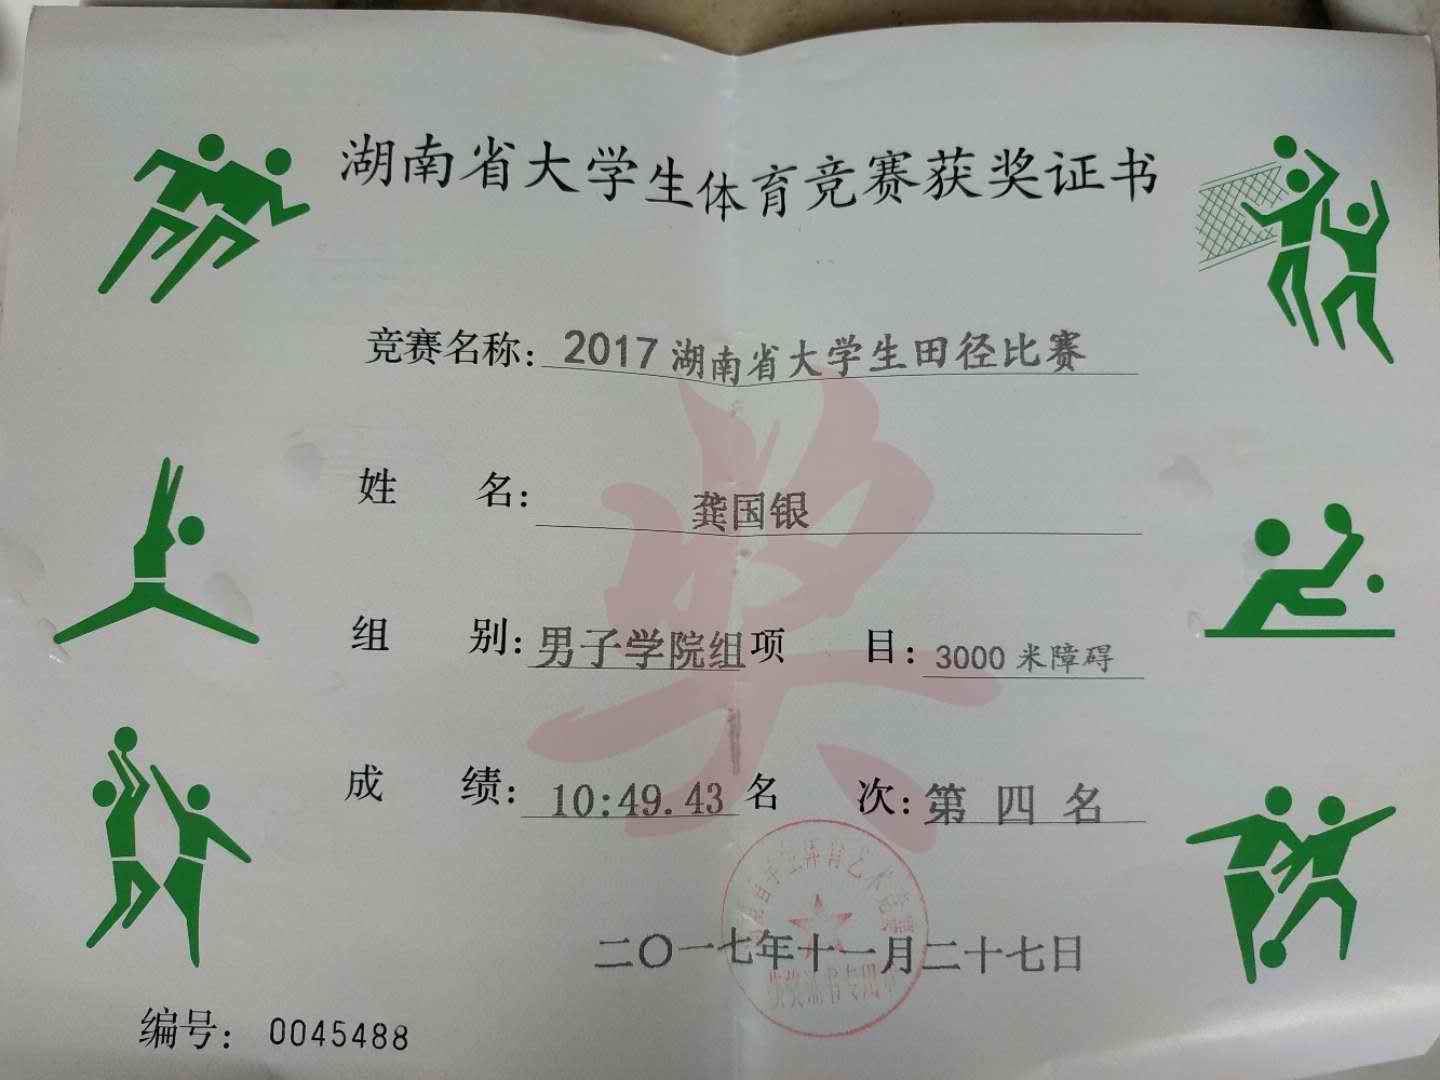 湖南省大学生体育竞赛获奖证书
竞赛名称：2017湖南省大学生田径比赛
姓 名：龚国银
组 别：男子学院组 项 目：3000米障碍
成 绩：10:49.43 名 次：第四名
二〇一七年十一月二十七日
编号：0045488
奖